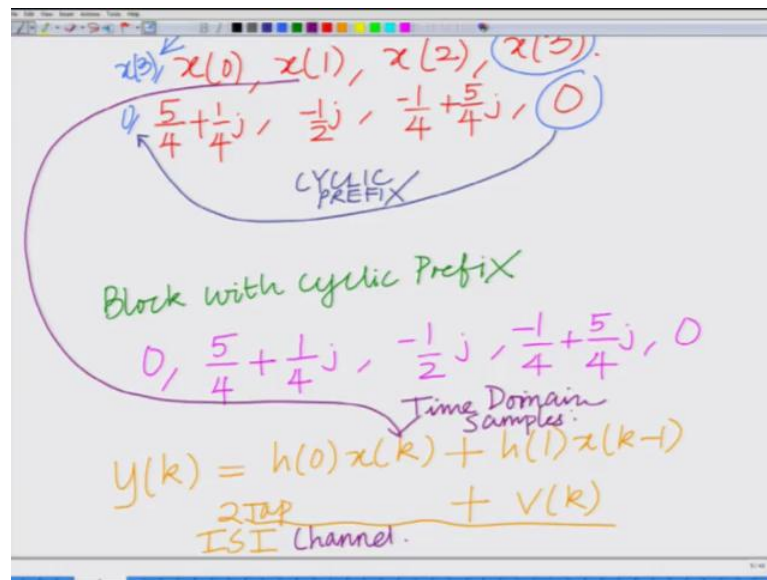 x(3), x(0), x(1), x(2), x(3).
0, 5/4 + 1/4 j, -1/2 j, -1/4 + 5/4 j, 0
CYCLIC
PREFIX
Block with Cyclic Prefix
0, 5/4 + 1/4 j, -1/2 j, -1/4 + 5/4 j, 0
Time Domain
Samples.
y(k) = h(0)x(k) + h(1)x(k-1)
+ v(k)
2 Tap
ISI Channel.